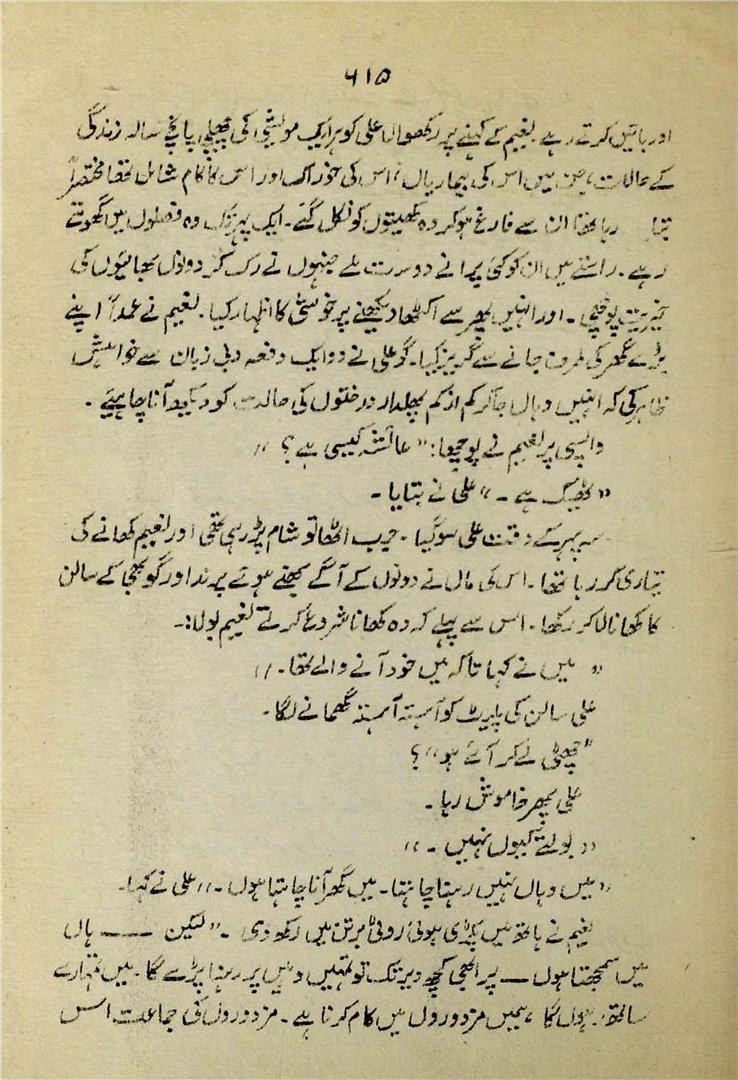 ۶۱۵
اور باتیں کرتے رہے۔ نعیم کے کہنے پر رکھوالا علی کو ہر ایک مویشی کی پچھلی پانچ سالہ زندگی
کے حالات، جن میں اس کی بیماریاں، اس کی خوراک اور اس کا کام شامل تھا مختصراً
بتا رہا تھا ان سے فارغ ہو کر وہ کھیتوں کو نکل گئے۔ ایک پہر تک وہ فصلوں میں گھومتے
رہے۔ راستے میں ان کو کئی پرانے دوست ملے جنہوں نے رک کر دونوں بھائیوں کی
خیریت پوچھی۔ اور انہیں پھر سے اکٹھا دیکھنے پر خوشی کا اظہار کیا۔ نعیم نے عمداً اپنے
بڑے گھر کی طرف جانے سے گریز کیا۔ گو علی نے دو ایک دفعہ دبی زبان سے خواہش
ظاہر کی کہ انہیں وہاں جا کر کم از کم پھلدار درختوں کی حالت کو دیکھ آنا چاہیئے۔
واپسی پر نعیم نے پوچھا: "عائشہ کیسی ہے؟"
"ٹھیک ہے۔" علی نے بتایا۔
سہ پہر کے وقت علی سو گیا۔ جب اٹھا تو شام پڑ رہی تھی اور نعیم کھانے کی
تیاری کر رہا تھا۔ اس کی ماں نے دونوں کے آگے بھنے ہوئے پرند اور گوبھی کے سالن
کا کھانا لا کر رکھا۔ اس سے پہلے کہ وہ کھانا شروع کرتے نعیم بولا:۔
"میں نے کہا تا کہ میں خود آنے والا تھا۔"
علی سالن کی پلیٹ کو آہستہ آہستہ گھمانے لگا۔
"چھٹی لے کر آئے ہو"؟
علی پھر خاموش رہا۔
"بولتے کیوں نہیں۔"
"میں وہاں نہیں رہنا چاہتا۔ میں گھر آنا چاہتا ہوں۔" علی نے کہا۔
نعیم نے ہاتھ میں پکڑی ہوئی روٹی برتن میں رکھ دی۔ "لیکن —— ہاں
میں سمجھتا ہوں — پر ابھی کچھ دیر تک تو تمہیں وہیں پر رہنا پڑے گا۔ میں تمہارے
ساتھ ہوں گا، ہمیں مزدوروں میں کام کرنا ہے۔ مزدوروں کی جماعت اس